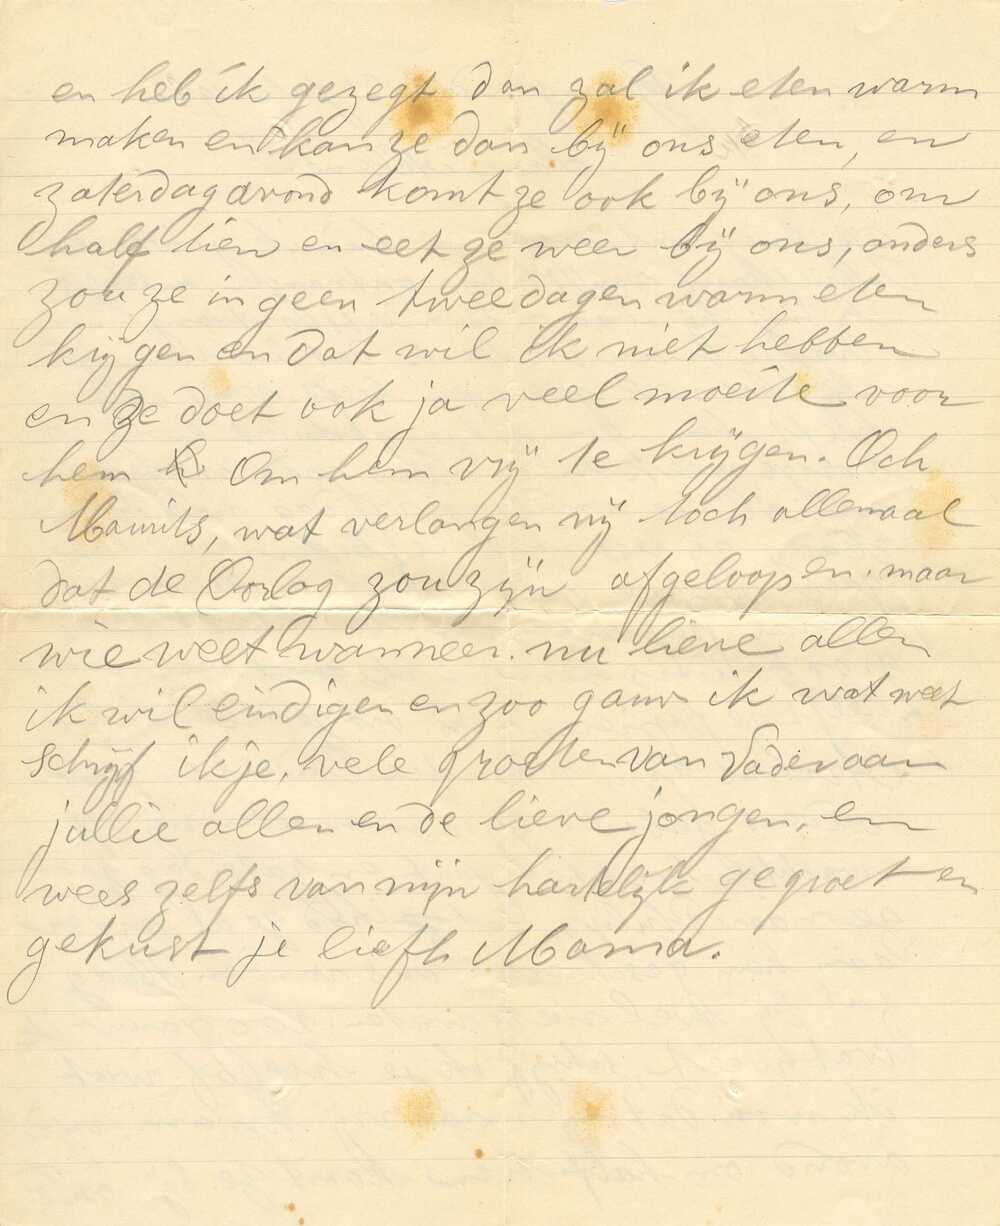 en heb ik gezegt dan zal ik eten warm
maken en kan ze dan bij ons eten, en
zaterdagavond komt ze ook bij ons, om
half tien en eet ze weer bij ons, anders
zou ze in geen twee dagen warm eten
krijgen en dat wil ik niet hebben
en ze doet ook ja veel moeite voor
hem om hem vrij te krijgen. Och
Maurits, wat verlangen wij toch allemaal
dat de Oorlog zou zijn afgeloopen. maar
wie weet wanneer. nu lieve allen
ik wil eindigen en zoo gauw ik wat weet
schrijf ik je, vele groeten van Vader aan
jullie allen en de lieve jongen, en
wees zelfs van mijn hartelijk gegroet en
gekust je liefh Mama.